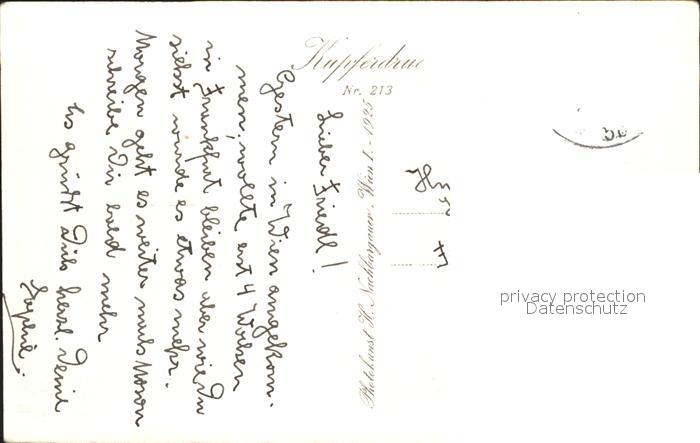 Kupferdruc
Nr. 213
Photokunst H. Nachbargauer, Wien I. - 1925
Lieber Friedl!
Gestern in Wien angekom-
men, wollte erst 4 Wochen
in Frankfurt bleiben aber wie Du
siehst wurde es etwas mehr.
Morgen geht es weiter nach
schreibe Dir bald mehr
Es grüßt Dich herzl. Deine
privacy protection
Datenschutz